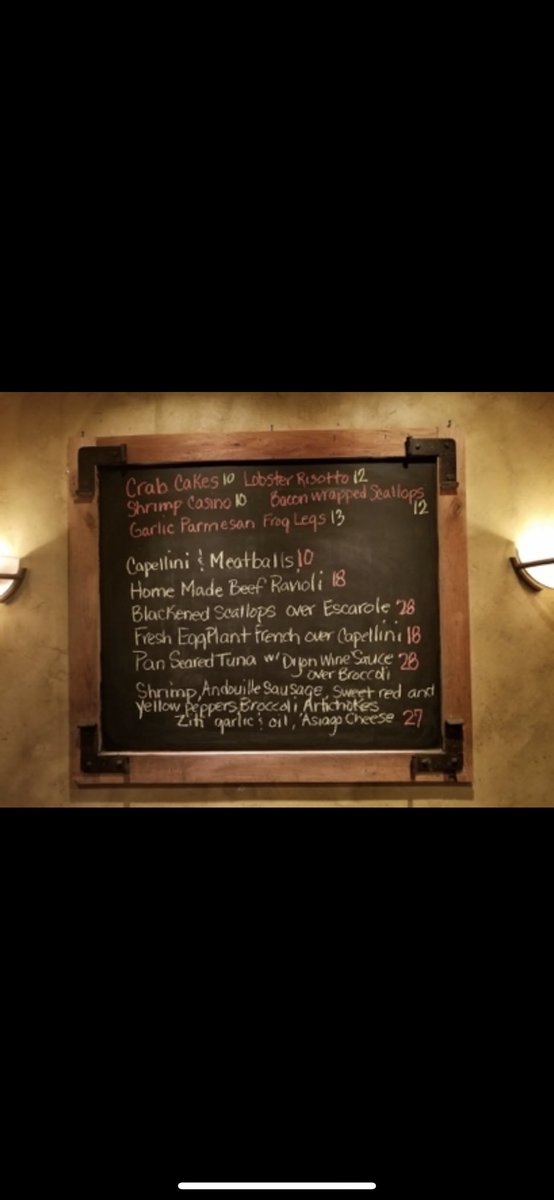 Crab Cakes 10 Lobster Risotto 12
Shrimp Casino 10 Bacon wrapped Scallops 12
Garlic Parmesan Frog Legs 13
Capellini & Meatballs 10
Home Made Beef Ravioli 18
Blackened Scallops over Escarole 28
Fresh EggPlant French over Capellini 18
Pan Seared Tuna w/ Dijon Wine Sauce 28
over Broccoli
Shrimp, Andouille Sausage, Sweet red and
yellow peppers, Broccoli, Artichokes
Ziti garlic & oil, Asiago Cheese 27